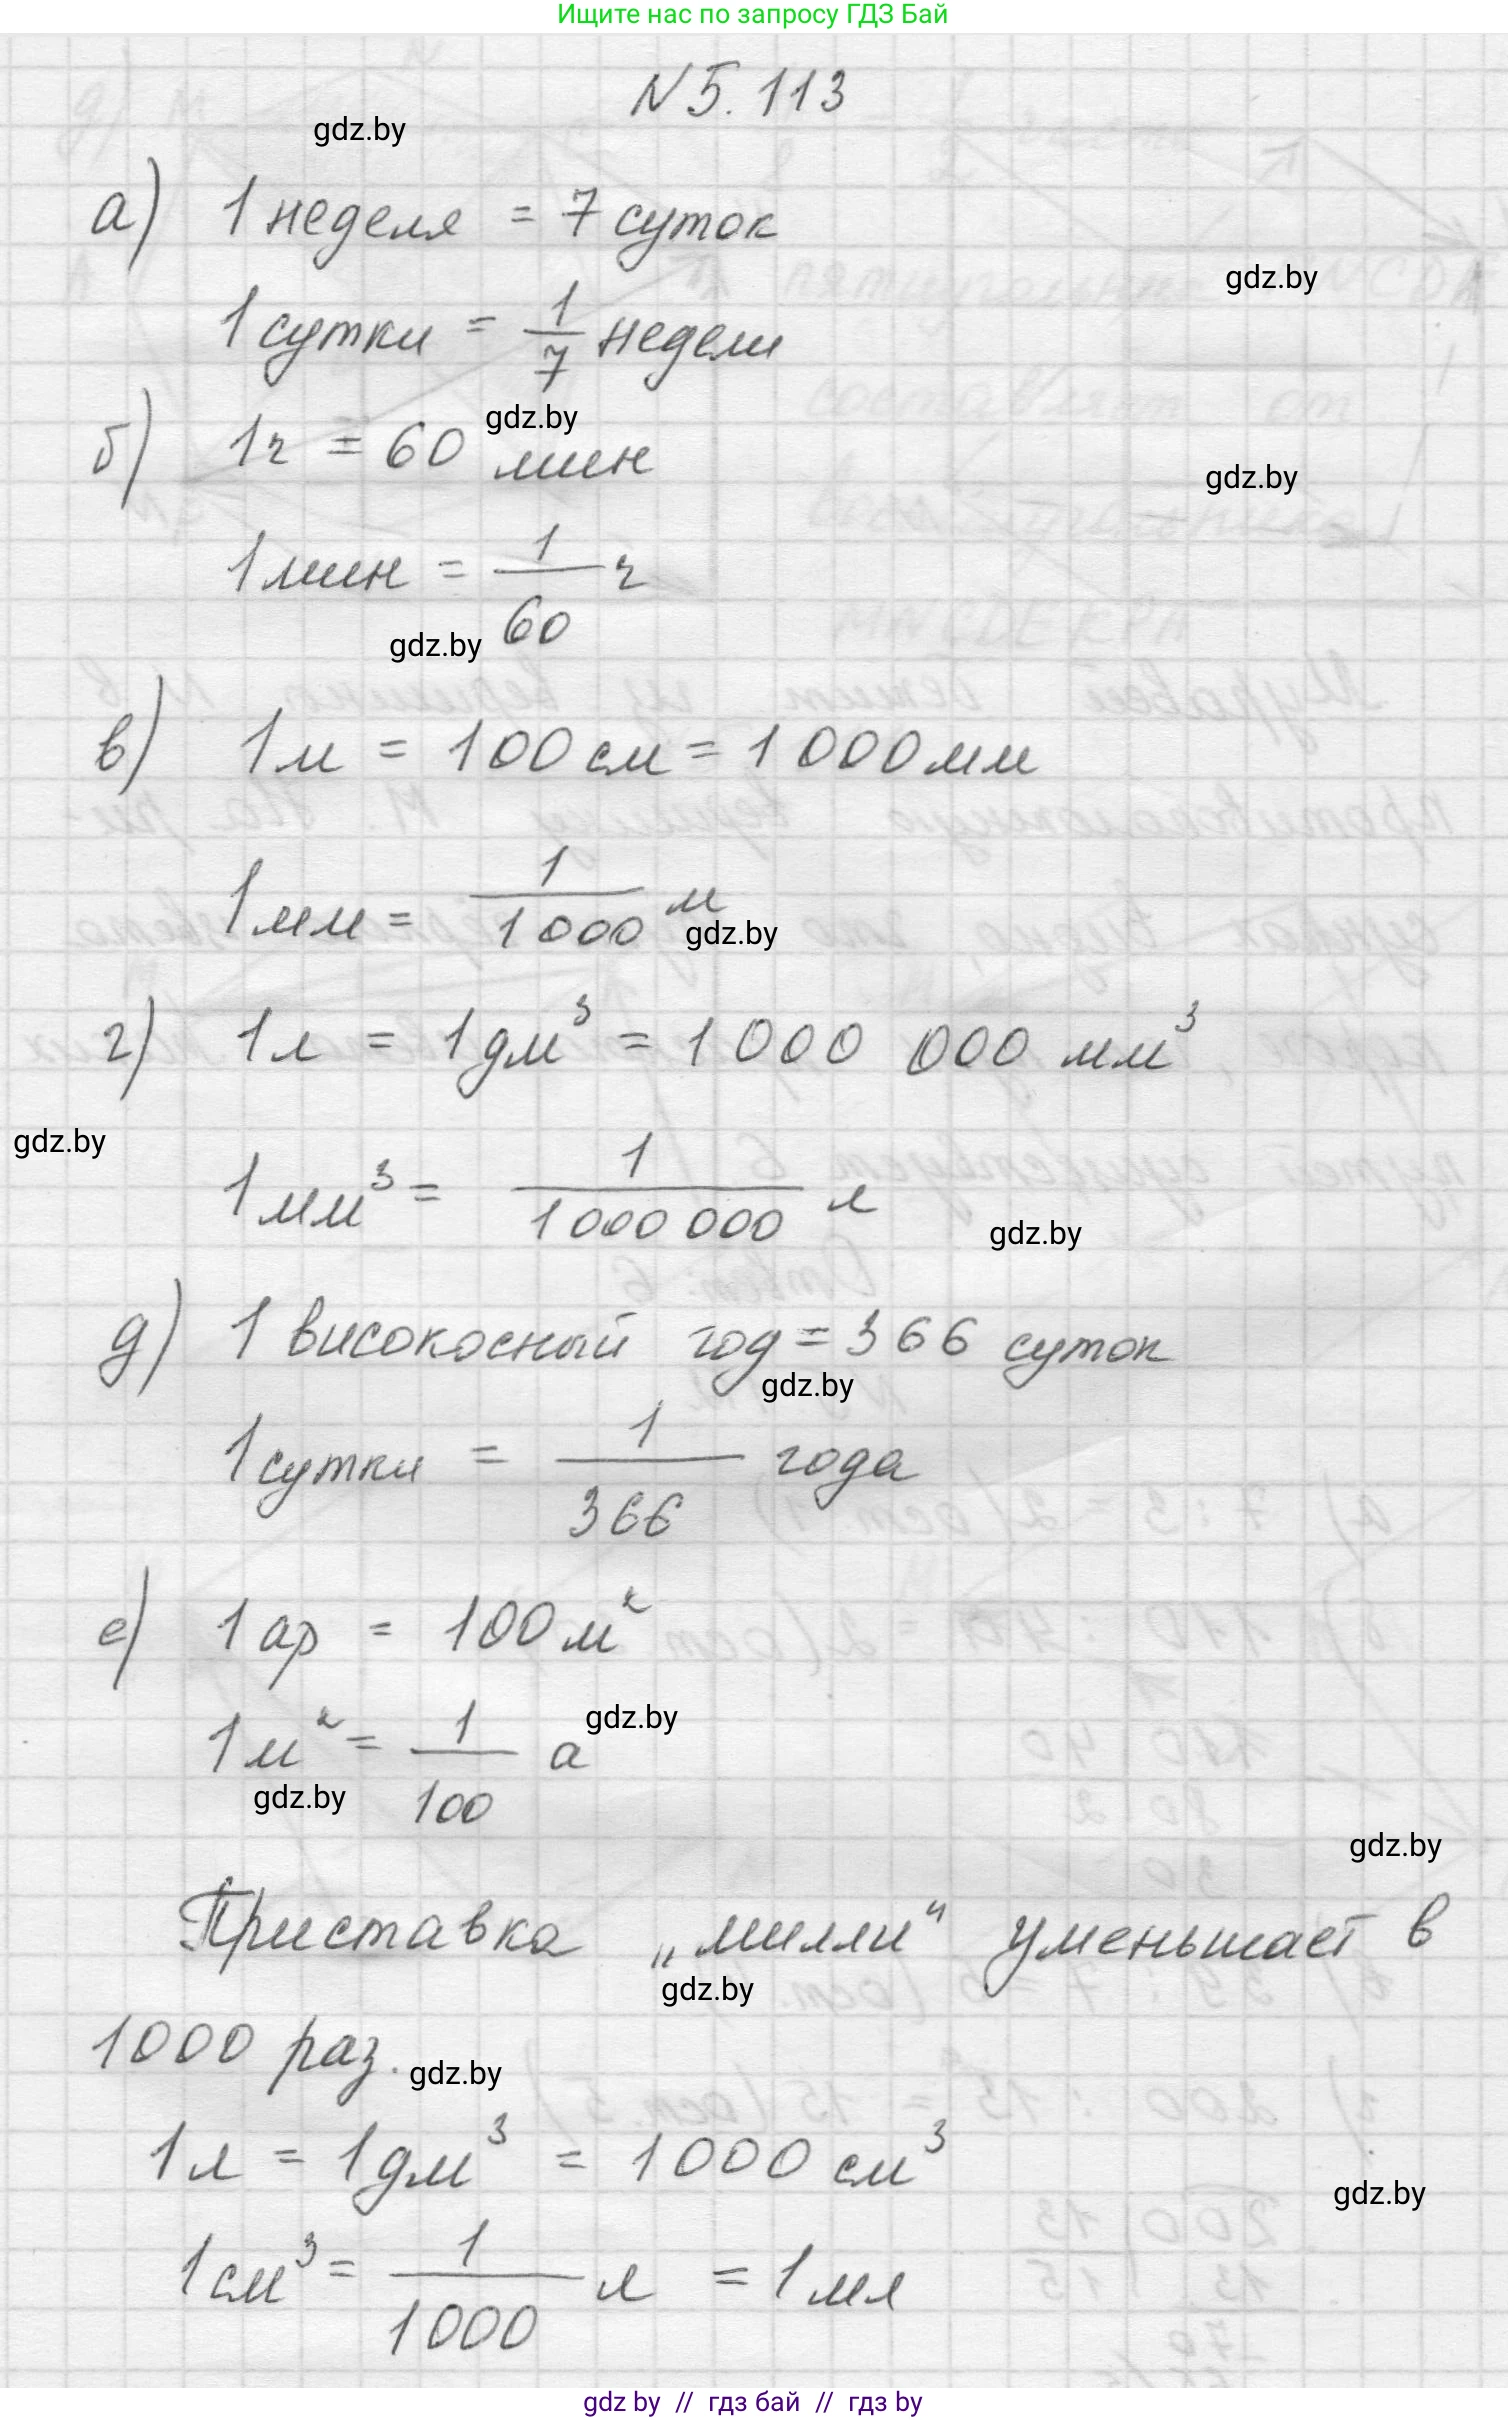 Ищите нас по запросу ГДЗ Бай
N 5.113
gdz.by
а) 1 неделя = 7 суток
gdz.by
1 сутки = 1/7 недели
gdz.by
б) 1 ч = 60 мин
gdz.by
1 мин = 1/60 ч
gdz.by
в) 1 м = 100 см = 1 000 мм
1 мм = 1/1 000 м
gdz.by
г) 1 л = 1 дм³ = 1 000 000 мм³
gdz.by
1 мм³ = 1/1 000 000 л
gdz.by
д) 1 високосный год = 366 суток
gdz.by
1 сутки = 1/366 года
е) 1 ар = 100 м²
gdz.by
1 м² = 1/100 а
gdz.by
gdz.by
Приставка „милли“ уменьшает в
gdz.by
1000 раз.
gdz.by
1 л = 1 дм³ = 1000 см³
gdz.by
1 см³ = 1/1000 л = 1 мл
gdz by // гдз бай // гдз by